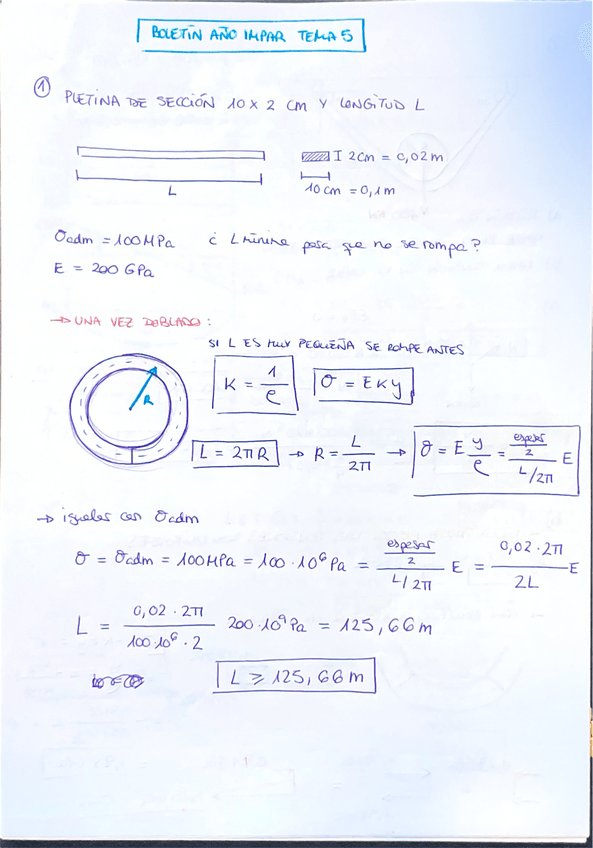 BOLETÍN AÑO IMPAR TEMA 5
① PLETINA DE SECCIÓN 10 x 2 cm Y LONGITUD L
I 2cm = 0,02 m
L
10 cm = 0,1 m
σadm = 100 MPa ¿ L mínima para que no se rompa?
E = 200 GPa
→ UNA VEZ DOBLADO:
SI L ES MUY PEQUEÑA SE ROMPE ANTES
R
K = 1/ρ σ = E K y
L = 2π R → R = L/2π → σ = E y/ρ = (espesor/2)/(L/2π) E
→ igualar con σadm
σ = σadm = 100 MPa = 100 · 10⁶ Pa = (espesor/2)/(L/2π) E = (0,02 · 2π)/2L E
L = (0,02 · 2π)/(100·10⁶ · 2) 200·10⁹ Pa = 125,66 m
L ⩾ 125,66 m